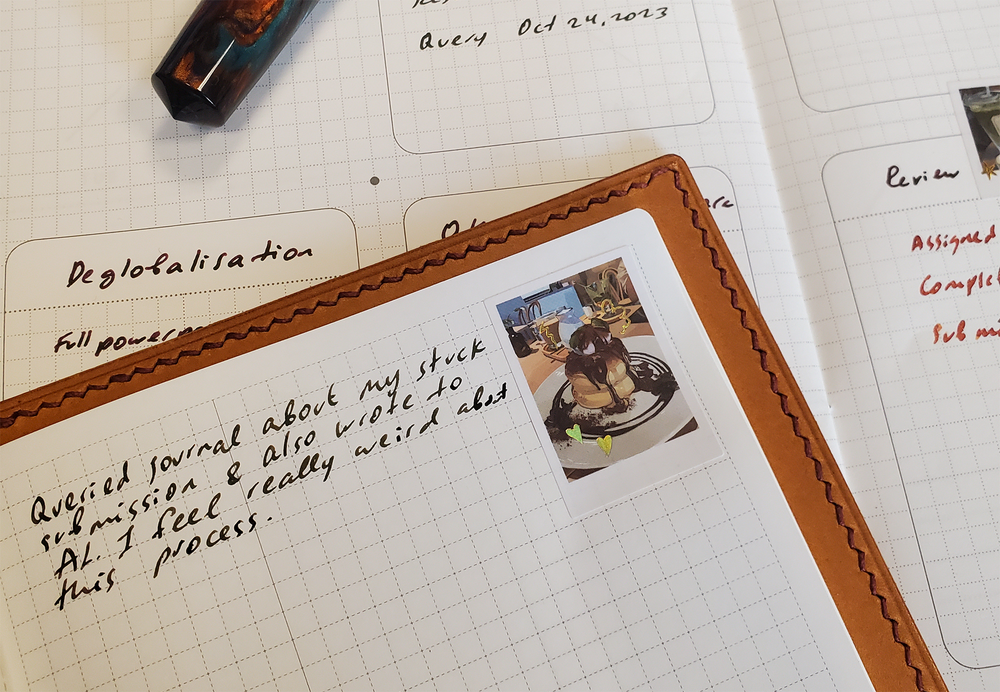 Query Oct 24, 2023
Deglobalisation
Full
Review
Assigned
Queried journal about my stuck
submission & also wrote to
AL. I feel really weird about
this process.